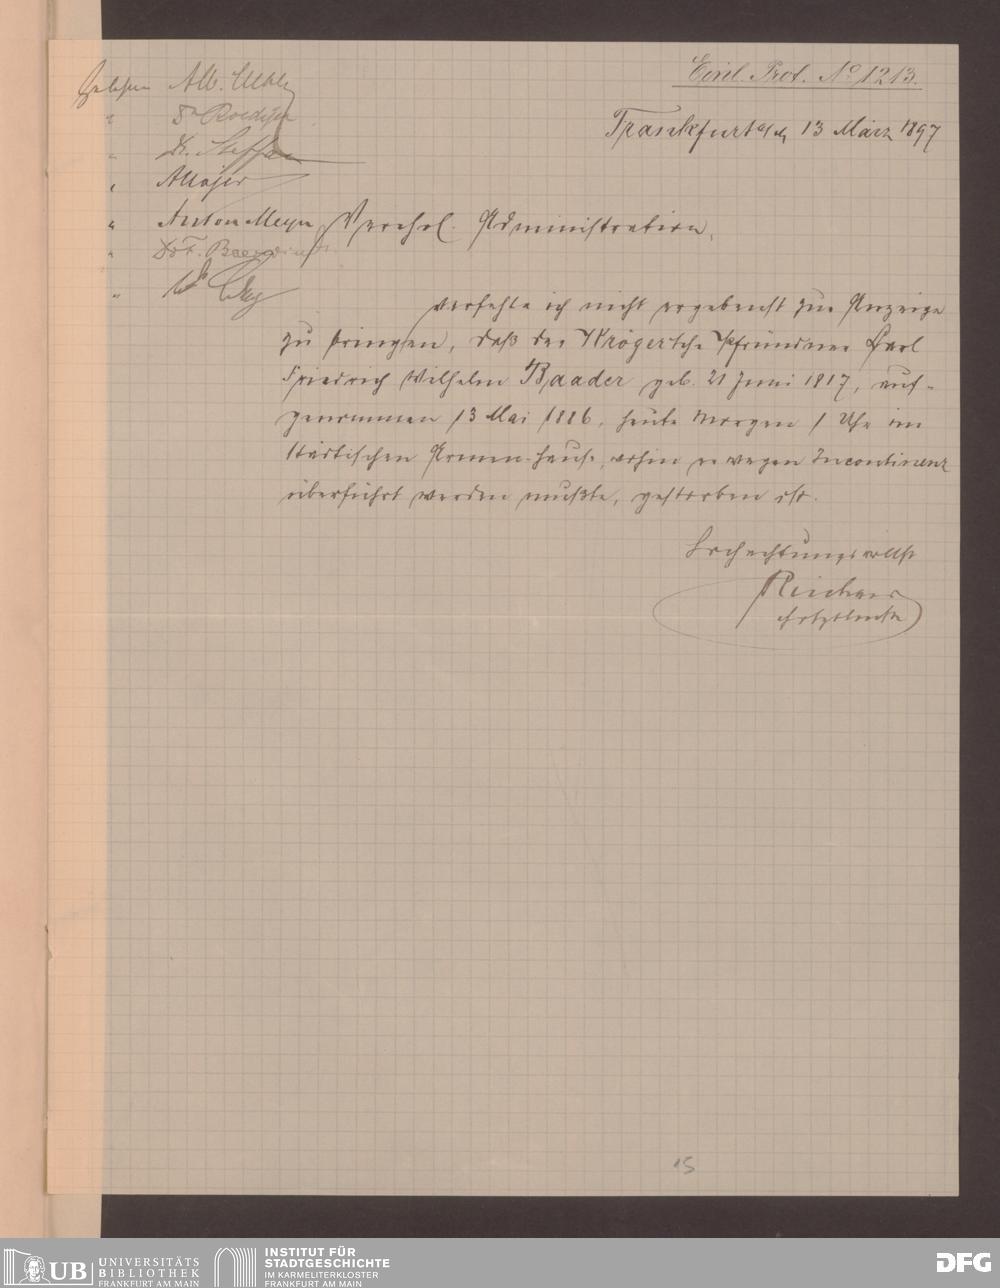 Einl. Prot. No 1213.
Frankfurt a/M 13 März 1897
Gelesen Alb.
" Dr Roediger
" Dr.
"
" Anton Meyer
" Dr F.
"
Verehrl. Administration,
verfehle ich nicht ergebenst zur Anzeige
zu bringen, daß der Krögersche Pfründner Carl
Friedrich Wilhelm Baader geb. 21 Juni 1817, auf-
genommen 13 Mai 1886, heute Morgen 1 Uhr im
städtischen Armen-Hause, wohin er wegen Incontinenz
überführt werden mußte, gestorben ist.
Hochachtungsvollst
15
UB UNIVERSITÄTS
BIBLIOTHEK
FRANKFURT AM MAIN
INSTITUT FÜR
STADTGESCHICHTE
IM KARMELITERKLOSTER
FRANKFURT AM MAIN
DFG